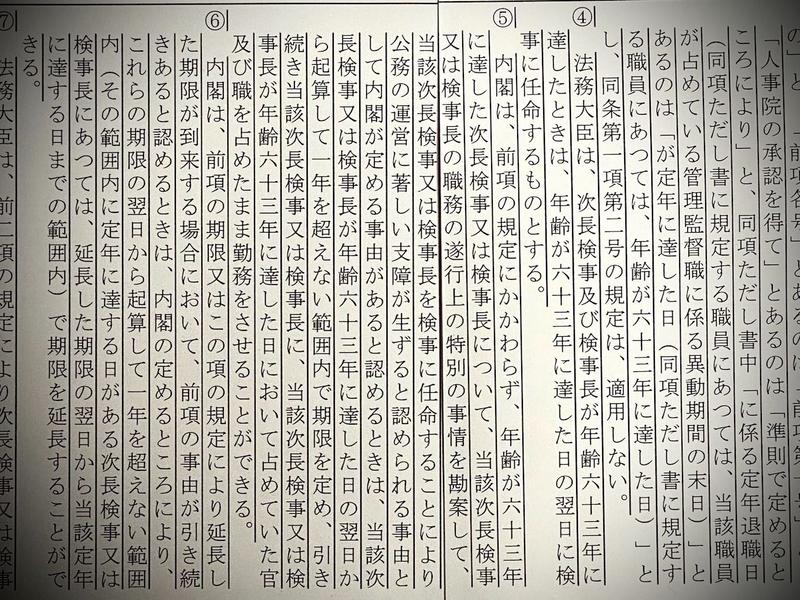 の」と、「前項各号」とあるのは「前項第一号」と、
「人事院の承認を得て」とあるのは「準則で定めると
ころにより」と、同項ただし書中「に係る定年退職日
（同項ただし書に規定する職員にあつては、当該職員
が占めている管理監督職に係る異動期間の末日）」と
あるのは「が定年に達した日（同項ただし書に規定す
る職員にあつては、年齢が六十三年に達した日）」と
し、同条第一項第二号の規定は、適用しない。
④　法務大臣は、次長検事及び検事長が年齢六十三年に
達したときは、年齢が六十三年に達した日の翌日に検
事に任命するものとする。
⑤　内閣は、前項の規定にかかわらず、年齢が六十三年
に達した次長検事又は検事長について、当該次長検事
又は検事長の職務の遂行上の特別の事情を勘案して、
当該次長検事又は検事長を検事に任命することにより
公務の運営に著しい支障が生ずると認められる事由と
して内閣が定める事由があると認めるときは、当該次
長検事又は検事長が年齢六十三年に達した日の翌日か
ら起算して一年を超えない範囲内で期限を定め、引き
続き当該次長検事又は検事長に、当該次長検事又は検
事長が年齢六十三年に達した日において占めていた官
及び職を占めたまま勤務をさせることができる。
⑥　内閣は、前項の期限又はこの項の規定により延長し
た期限が到来する場合において、前項の事由が引き続
きあると認めるときは、内閣の定めるところにより、
これらの期限の翌日から起算して一年を超えない範囲
内（その範囲内に定年に達する日がある次長検事又は
検事長にあつては、延長した期限の翌日から当該定年
に達する日までの範囲内）で期限を延長することがで
きる。
⑦　法務大臣は、前二項の規定により次長検事又は検事